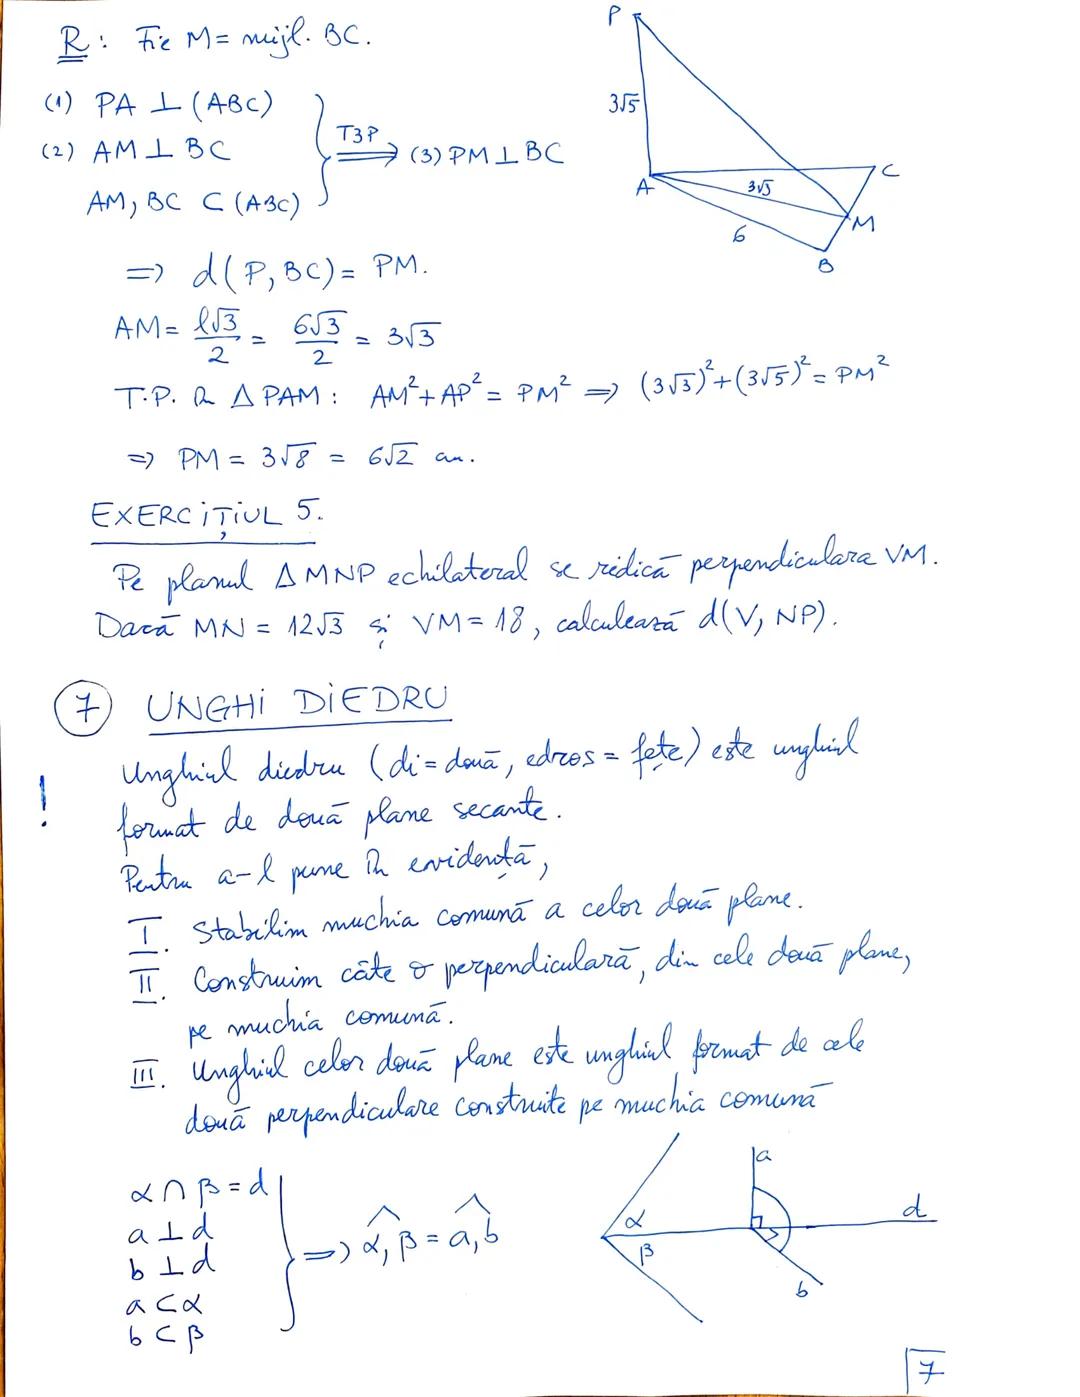 R: Fie M = mijl. BC.
(1) PA ⊥ (ABC)
(2) AM ⊥ BC
AM, BC ⊂ (ABC)
T3P ⟹ (3) PM ⊥ BC
P
3√5
A
3√3
C
M
6
B
=> d(P, BC) = PM.
AM = l√3/2 = 6√3/2 = 3√3
T.P. în △PAM: AM² + AP² = PM² => (3√3)² + (3√5)² = PM²
=> PM = 3√8 = 6√2 cm.
EXERCIȚIUL 5.
Pe planul △MNP echilateral se ridică perpendiculara VM.
Dacă MN = 12√3 și VM = 18, calculează d(V, NP).
7 UNGHI DIEDRU
! Unghiul diedru (di = două, edros = fețe) este unghiul
format de două plane secante.
Pentru a-l pune în evidență,
I. Stabilim muchia comună a celor două plane.
II. Construim câte o perpendiculară, din cele două plane,
pe muchia comună.
III. Unghiul celor două plane este unghiul format de cele
două perpendiculare construite pe muchia comună
α ∩ β = d
a ⊥ d
b ⊥ d
a ⊂ α
b ⊂ β
=> α, β = a, b
a
d
α
β
b
7